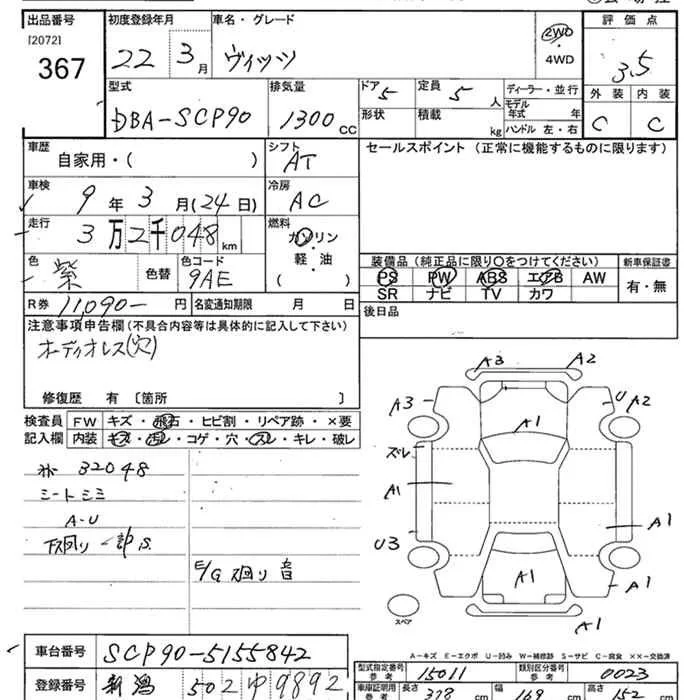 出品番号 初度登録年月 車名・グレード 評価点
[2072]
367 22 3月 ヴィッツ 2WD・4WD 3.5
型式 排気量 ドア 5 定員 5人 ディーラー・並行 外装 内装
DBA-SCP90 1300CC 形状 積載 kg モデル年式 年 ハンドル 左・右 C C
車歴 シフト セールスポイント (正常に機能するものに限ります)
自家用・( ) AT
車検 9年3月(24日) 冷房 AC
走行 3万2千048km 燃料 ガソリン・軽・油 ( )
色 紫 色替 色コード 9AE
装備品 (純正品に限り○をつけてください) 新車保証書
PS PW ABS エアB AW 有・無
SR ナビ TV カワ
R券 11,090-円 名変通知期限 月 日
後日品
注意事項申告欄(不具合内容等は具体的に記入して下さい)
オーディオレス(穴)
修復歴 有 〔箇所 〕
検査員 FW キズ・飛石・ヒビ割・リペア跡・×要
記入欄 内装 キズ・汚レ・コゲ・穴・スレ・キレ・破レ
32048
シートシミ
A-U
下廻り一部S.
E/G廻り音
A3 A2
A3 U A2
A1
ズレ
A1
A1
U3
A1
A1
A1
スペア
A-キズ E-エクボ U-凹み W-補修跡 S-サビ C-腐食 ××-交換済
車台番号 SCP90-5155842
登録番号 新潟 502 ゆ 9892
型式指定番号 参考 15011 類別区分番号 参考 0023
車庫証明用 参考 長さ 378cm 幅 169cm 高さ 152cm